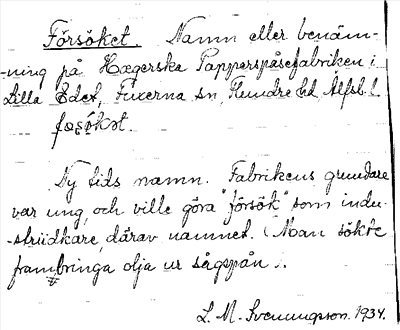 Försöket. Namn eller benäm-
-ning på Hægerska Papperspåsefabriken i
Lilla Edet, Fuxerna sn, Flundre hd Älfsb. l.
Ny tids namn. Fabrikens grundare
var ung, och ville göra "försök" som indu-
-striidkare, därav namnet. (Man sökte
frambringa olja ur sågspån).
L. M. Svenungsson. 1934.